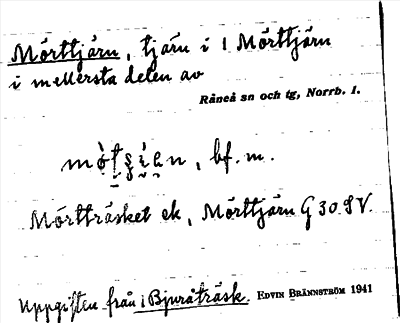 Mörttjärn, tjärn i 1 Mörttjärn
i mellersta delen av
Råneå sn och tg, Norrb. l.
bf. m.
Mörtträsket ek, Mörttjärn G 30 SV.
Uppgiften från i Bjuråträsk. EDVIN BRÄNNSTRÖM 1941